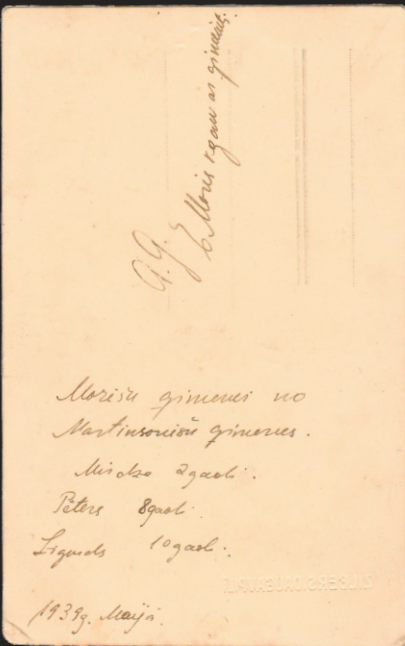 A. G.
E Moris kgam ar gimeni.
Morišu gimenei no
Martinsonišu gimenes.
Mirdza 2gadi.
Pēters 8gadi.
Zigurds 10gadi.
1939g. Maijā.